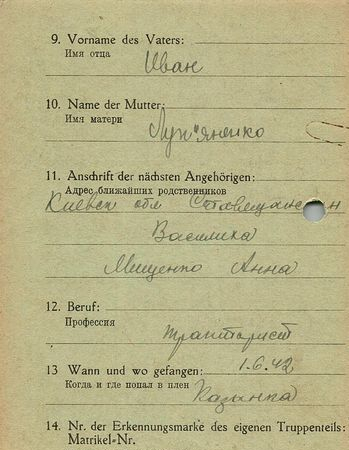 9. Vorname des Vaters:
Имя отца
Иван
10. Name der Mutter:
Имя матери
Лук"яненко
11. Anschrift der nächsten Angehörigen:
Адрес ближайших родственников
Киевск обл
Василиха
Мищенко Анна
12. Beruf:
Профессия
тракторист
13 Wann und wo gefangen: 1.6.42
Когда и где попал в плен
14. Nr. der Erkennungsmarke des eigenen Truppenteils:
Matrikel-Nr.